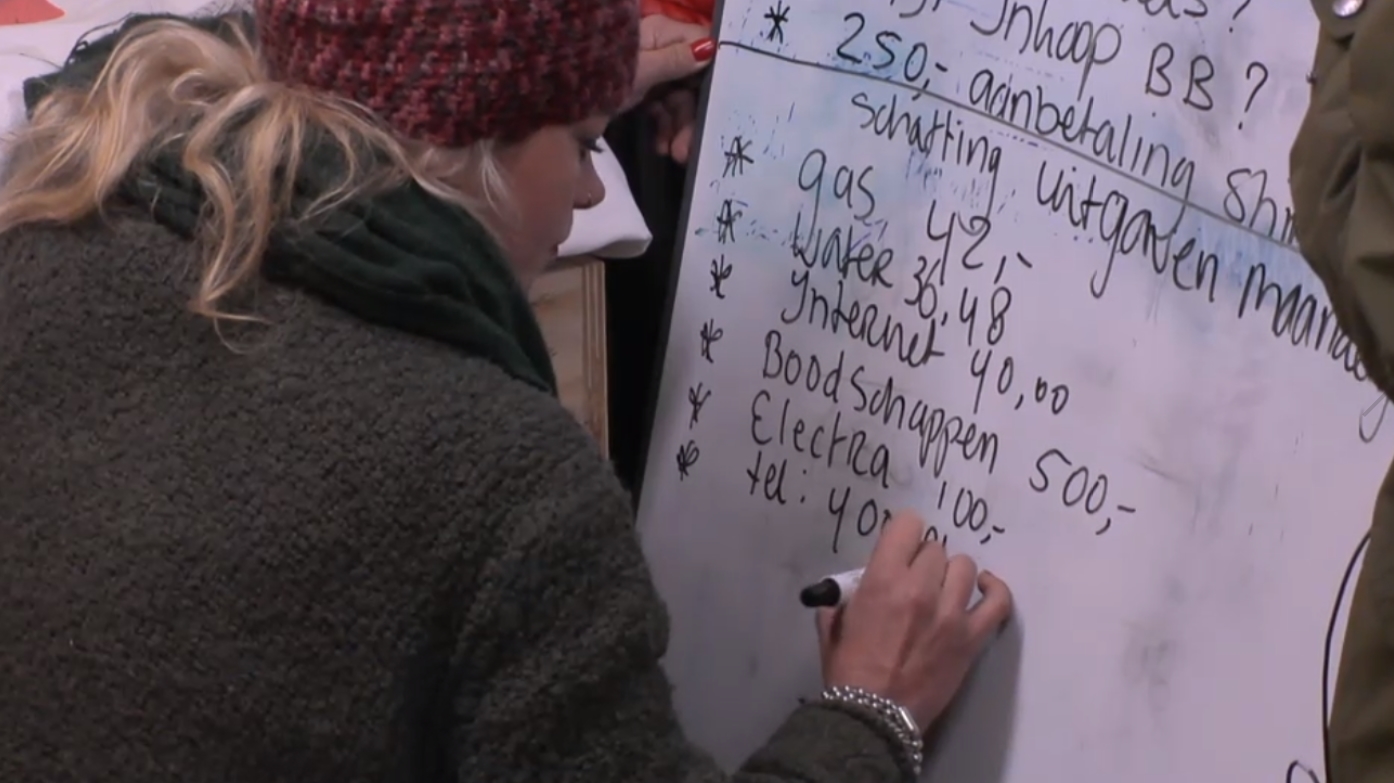 Inkoop BB?
* 250,- aanbetaling
schatting uitgaven
* gas 42,-
* Water 36,48
* Internet 40,00
* Boodschappen 500,-
* Electra 100,-
* tel: 40